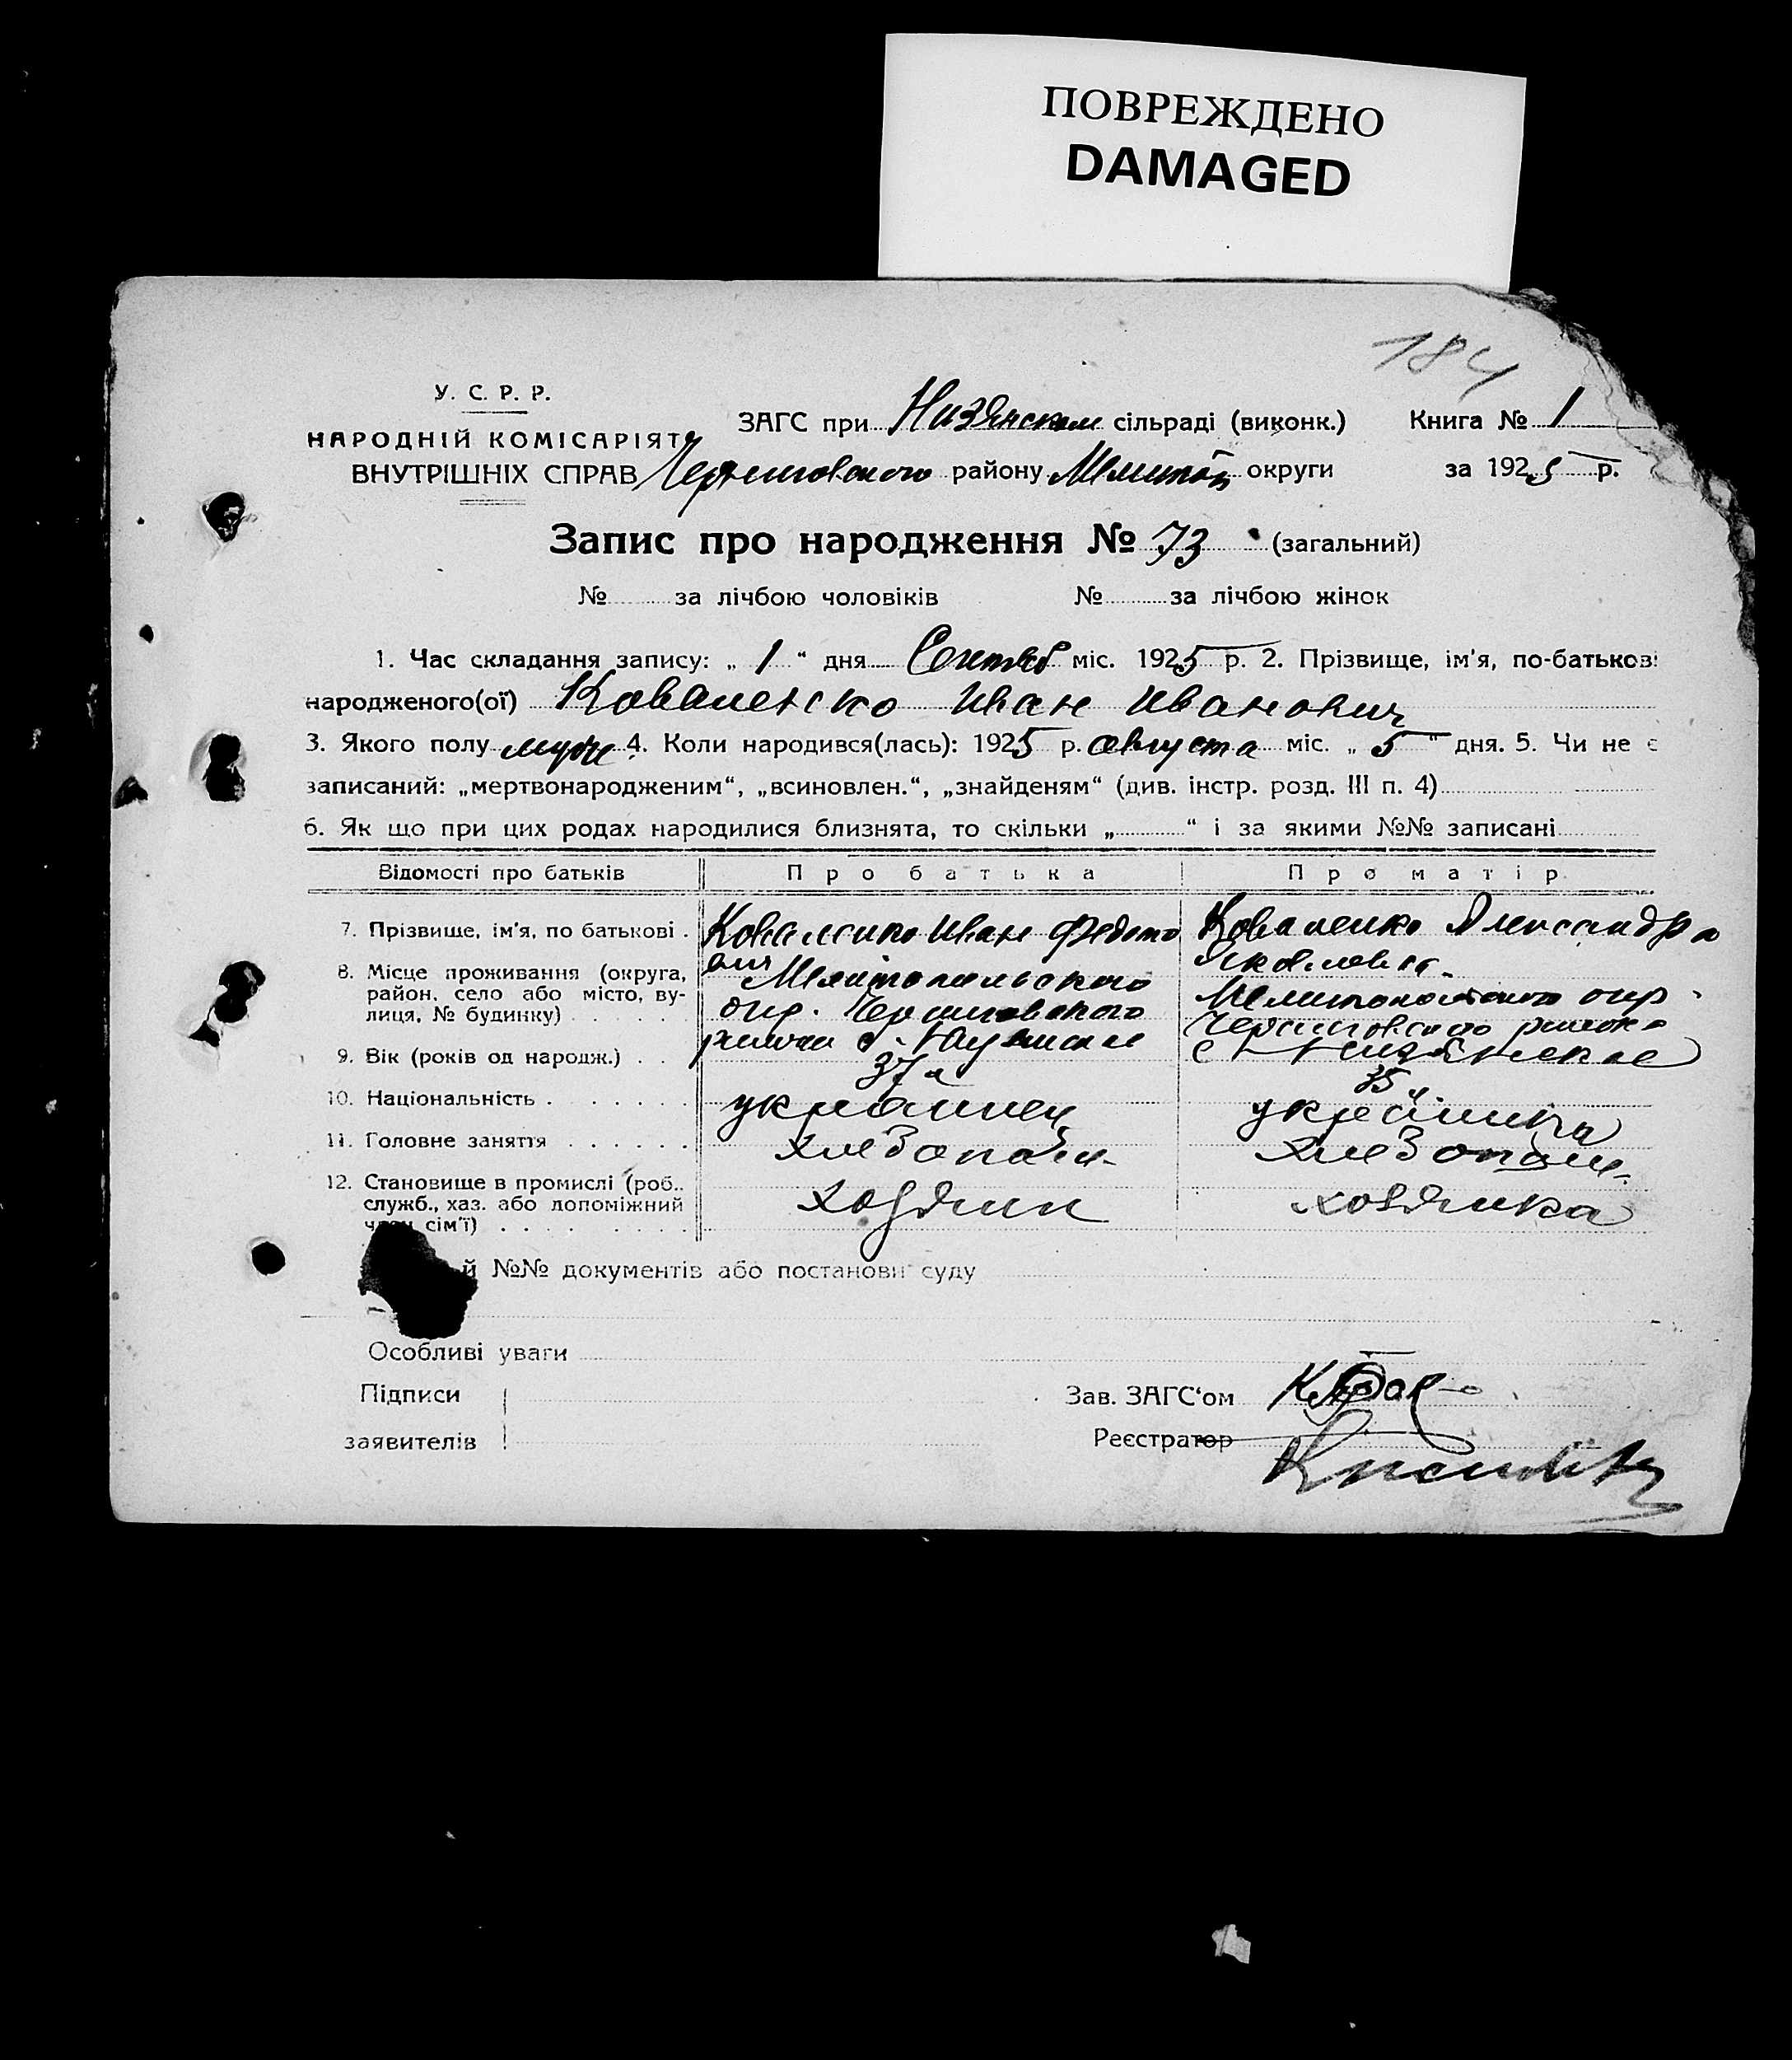 ПОВРЕЖДЕНО
DAMAGED
184
У. С. Р. Р.
НАРОДНІЙ КОМІСАРІЯТ
ВНУТРІШНІХ СПРАВ
ЗАГС при Низянском сільраді (виконк.) Книга № 1
Черниговского району Мелитоп округи за 1925 р.
Запис про народження № 73 (загальний)
№ за лічбою чоловіків № за лічбою жінок
1. Час складання запису: „ 1 “ дня міс. 1925 р. 2. Прізвище, ім'я, по-батькові
народженого(ої) Коваленско Иван Иванович
3. Якого полу муж. 4. Коли народився(лась): 1925 р. августа міс. „ 5 “ дня. 5. Чи не є
записаний: „мертвонародженим“, „всиновлен.“, „знайденям“ (див. інстр. розд. III п. 4)
6. Як що при цих родах народилися близнята, то скільки „ “ і за якими №№ записані
Відомості про батьків Про батька Про матір
7. Прізвище, ім'я, по батькові . Коваленко Иван Федото Коваленко Александра
вич Яковлевна
8. Місце проживання (округа, Мелитопольского Мелитопольского окр.
район, село або місто, ву- окр. Черниговского Черниговского района
лиця, № будинку) района с. с Низянское
9. Вік (років од народж.) . . 37 35
10. Національність . . . . . . украинец украинка
11. Головне заняття . . . . . . хлебопаш. хлебопаш.
12. Становище в промислі (роб.. хозяин хозяйка
служб., хаз. або допоміжний
член сім'ї) . . . . . . .
й №№ документів або постанови суду
Особливі уваги
Підписи Зав. ЗАГС‘ом
заявителів Реєстратор